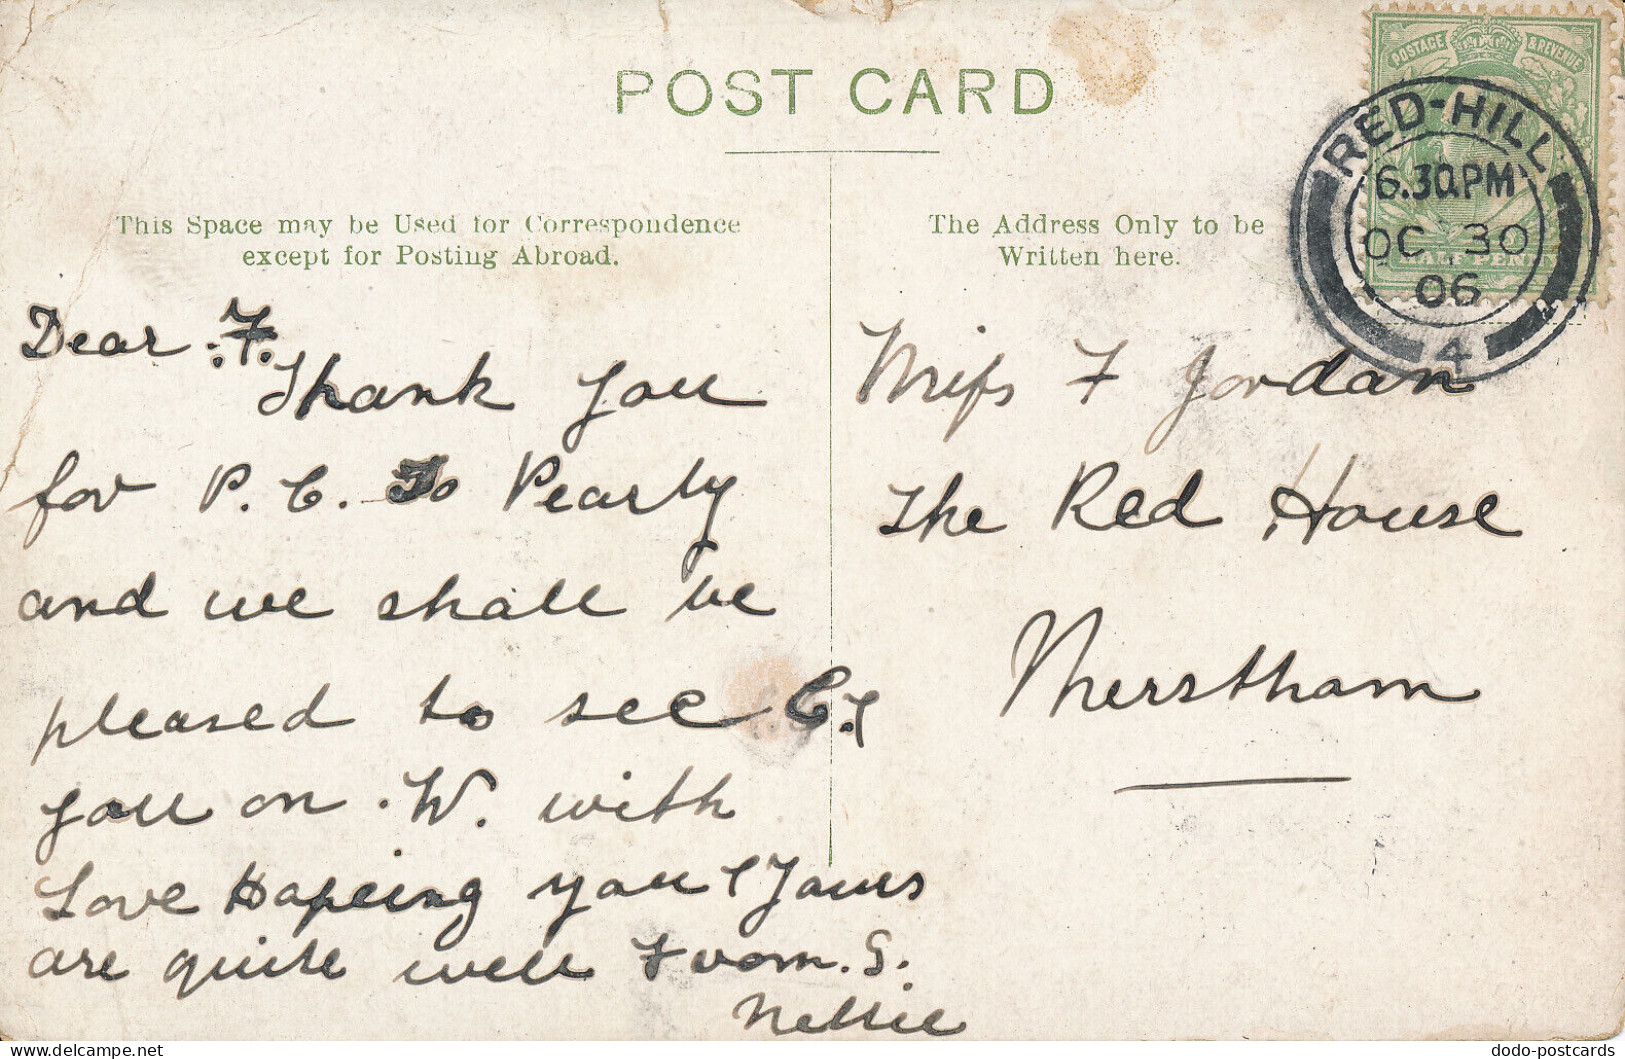 POST CARD
POSTAGE & REVENUE
RED-HILL
6.30.PM
OC 30
06
4
HALF PENNY
This Space may be Used for Correspondence
except for Posting Abroad.
The Address Only to be
Written here.
Dear .F.
Thank you
for P. C. To Pearly
and we shall be
pleased to see C.
you on .W. with
Love Hopeing you & yours
are quite well From. S.
Nellie
Miss F Jordan
The Red House
Merstham
dodo-postcards
www.delcampe.net